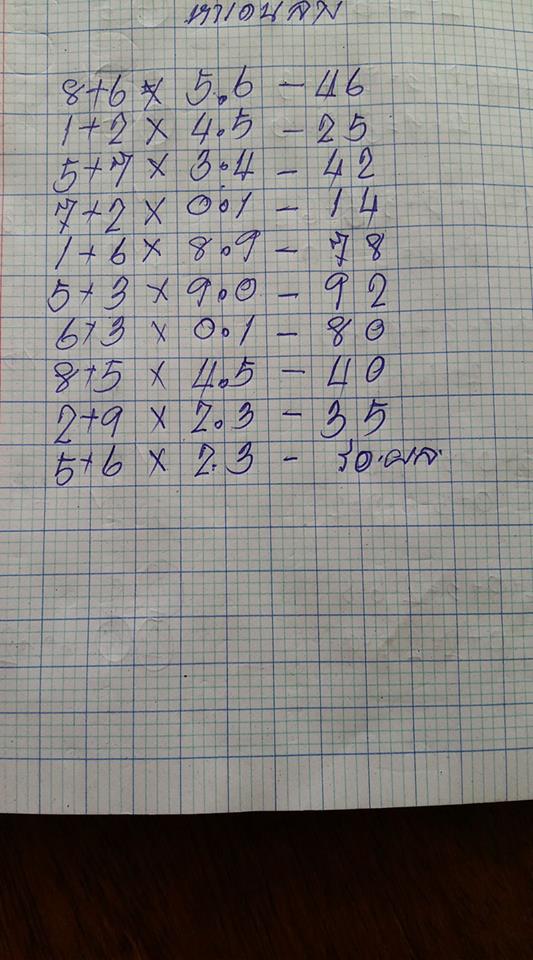 8+6 × 5.6 - 46
1+2 × 4.5 - 25
5+7 × 3.4 - 42
7+2 × 0.1 - 14
1+6 × 8.9 - 78
5+3 × 9.0 - 92
6+3 × 0.1 - 80
8+5 × 4.5 - 40
2+9 × 2.3 - 35
5+6 × 2.3 -